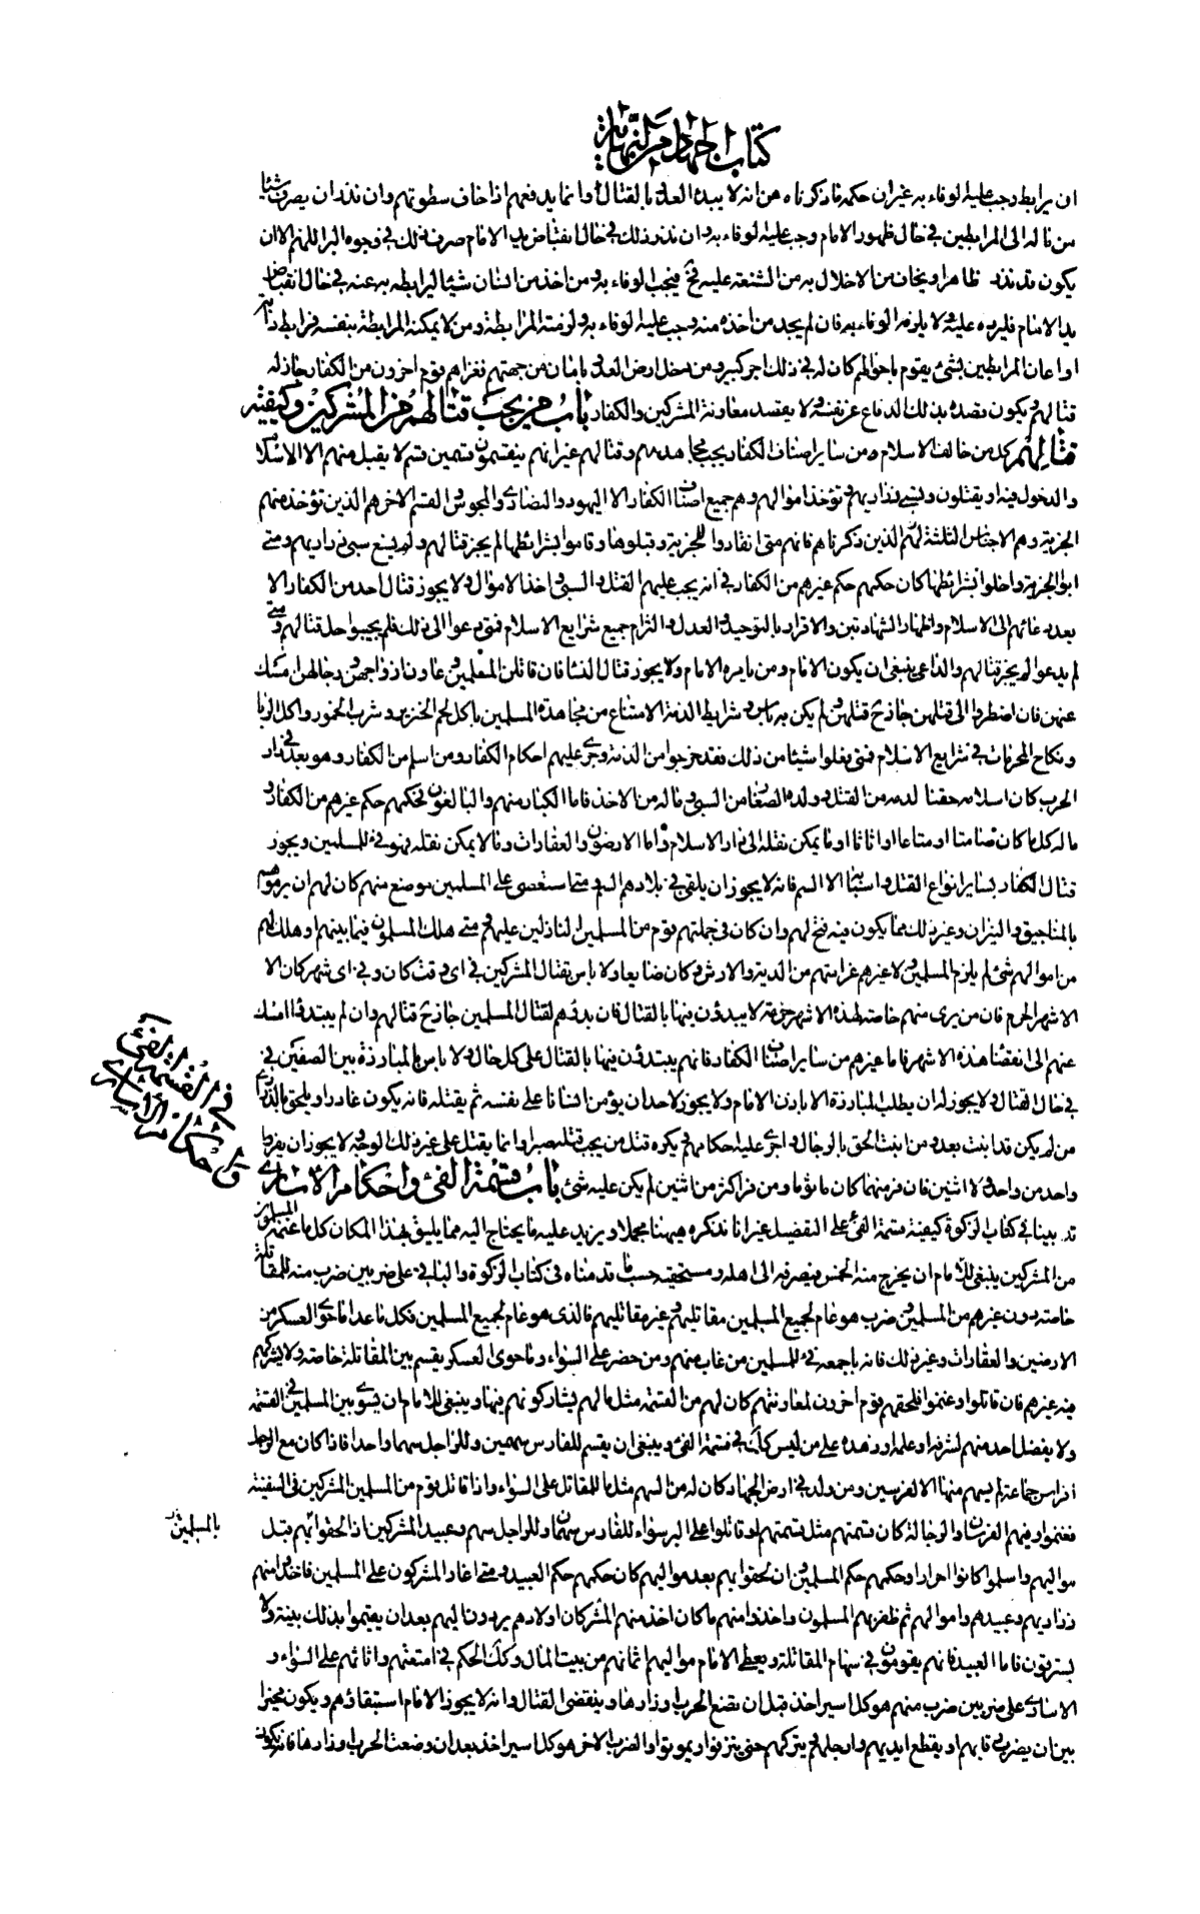 كتاب الجهاد من النهاية
ان يرابط وجب عليه الوفاء به غير ان حكمه ما ذكرناه من انه لا يبدء العدو بالقتال وانما يدفعهم اذا خاف سطوتهم وان نذر ان يصرف شيئا
من ماله الى المرابطين في حال ظهور الامام وجب عليه الوفاء به وان نذر ذلك في حال انقباض يد الامام صرف ذلك في وجوه البر اللهم الا ان
يكون قد نذر ظاهرا ويخاف من الاخلال به من الشنعة عليه فح فيجب الوفاء به ومن اخذ من انسان شيئا ليرابط به عنه في حال انقباض
يد الامام فليرده عليه ولا يلزمه الوفاء به فان لم يجد من اخذه منه وجب عليه الوفاء به ولزمته المرابطة ومن لا يمكنه المرابطة بنفسه فرابط دابة
او اعان المرابطين بشئ يقوم باحوالهم كان له في ذلك اجر كبير ومن دخل ارض العدو بامان من جهتهم فغزاهم قوم اخرون من الكفار جاز له
قتالهم ويكون قصده بذلك الدفاع عن نفسه ولا يقصد معاونة المشركين والكفار باب من يجب قتالهم من المشركين وكيفية
قتالهم كل من خالف الاسلام من سائر اصناف الكفار يجب مجاهدتهم وقتالهم غير انهم ينقسمون قسمين قسم لا يقبل منهم الا الاسلام
والدخول فيه او يقتلون وتسبى ذراريهم وتؤخذ اموالهم وهم جميع اصناف الكفار الا اليهود والنصارى والمجوس والقسم الاخر هم الذين تؤخذ منهم
الجزية وهم الاجناس الثلثة الذين ذكرناهم فانهم متى انقادوا للجزية وقبلوها وقاموا بشرائطها لم يجز قتالهم ولم يسغ سبى ذراريهم ومتى
ابوا الجزية واخلوا بشرائطها كان حكمهم حكم غيرهم من الكفار في انه يجب عليهم القتل والسبى واخذ الاموال ولا يجوز قتال احد من الكفار الا
بعد دعائهم الى الاسلام واظهار الشهادتين والاقرار بالتوحيد والعدل والتزام جميع شرايع الاسلام فمتى دعوا الى ذلك فلم يجيبوا حل قتالهم ومتى
لم يدعوا لم يجز قتالهم والداعي ينبغي ان يكون الامام ومن يامره الامام ولا يجوز قتال النساء فان قاتلن المسلمين وعاون ازواجهن ورجالهن امسك
عنهن فان اضطروا الى قتلهن جاز ح قتلهن ولم يكن به باس وشرايط الذمة الامتناع من مجاهدة المسلمين باكل لحم الخنزير وشرب الخمور واكل الربا
ونكاح المحرمات في شرايع الاسلام فمتى فعلوا شيئا من ذلك فقد خرجوا من الذمة وجرى عليهم احكام الكفار ومن اسلم من الكفار وهو بعد في دار
الحرب كان اسلامه حقنا لدمه من القتل وولده الصغار من السبي وماله من الاخذ فاما الكبار منهم والبالغون فحكمهم حكم غيرهم من الكفار و
ماله كل ما كان صامتا او متاعا او اثاثا او ما يمكن نقله الى دار الاسلام واما الارضون والعقارات وما لا يمكن نقله فهو فئ للمسلمين ويجوز
قتال الكفار بسائر انواع القتل واسبابه الا السم فانه لا يجوز ان يلقى في بلادهم السم ومتى استعصى على المسلمين موضع منهم كان لهم ان يرموهم
بالمناجيق والنيران وغير ذلك مما يكون فيه فتح لهم وان كان في جملتهم قوم من المسلمين النازلين عليهم ومتى هلك المسلمون فيما بينهم او هلك لهم
من اموالهم شئ لم يلزم المسلمين ولا غيرهم غرامتهم من الدية والارش وكان ضايعا ولا باس بقتال المشركين في اى وقت كان وفي اى شهر كان الا
الاشهر الحرم فان من يرى منهم خاصة لهذه الاشهر حرمة لا يبدؤن فيها بالقتال فان بدؤهم لقتال المسلمين جاز ح قتالهم وان لم يبتدؤا امسك
عنهم الى انقضاء هذه الاشهر فاما غيرهم من سائر اصناف الكفار فانهم يبتدؤن فيها بالقتال على كل حال ولا باس بالمبارزة بين الصفين في
في حال القتال ولا يجوز له ان يطلب المبارزة الا باذن الامام ولا يجوز لاحد ان يؤمن انسانا على نفسه ثم يقتله فانه يكون غادرا ويلحق بالذراري
من لم يكن قد انبت بعد ومن انبت الحق بالرجال واجرى عليه احكامهم ويكره قتل من يجب قتله صبرا وانما يقتل على غير ذلك الوجه ولا يجوز ان يفر
واحد من واحد ولا اثنين فان فر منهما كان ماثوما ومن فر اكثر من اثنين لم يكن عليه شئ باب قسمة الفئ واحكام الاسارى
قد بينا في كتاب الزكوة كيفية قسمة الفئ على التفصيل غير انا نذكره هيهنا مجملا ونزيد عليه ما يحتاج اليه مما يليق بهذا المكان كل ما غنمه المسلمون
من المشركين ينبغي للامام ان يخرج منه الخمس فيصرفه الى اهله ومستحقيه حسب ما قدمناه في كتاب الزكوة والباقي على ضربين ضرب منه للمقاتلة
خاصة دون غيرهم من المسلمين وضرب هو عام لجميع المسلمين مقاتليهم وغير مقاتليهم فالذى هو عام لجميع المسلمين فكل ما عدا ما حوى العسكر من
الارضين والعقارات وغير ذلك فانه باجمعه فئ للمسلمين من غاب منهم ومن حضر على السواء وما حوى العسكر يقسم بين المقاتلة خاصة ولا يشركهم
فيه غيرهم فان قاتلوا وغنموا فلحقهم قوم اخرون لمعاونتهم كان لهم من القسمة مثل ما لهم يشاركونهم فيها وينبغي للامام ان يسوى بين المسلمين في القسمة
ولا يفضل احد منهم لشرفه او علمه او زهده على من ليس كذلك في قسمة الفئ وينبغي ان يقسم للفارس سهمين وللراجل سهما واحدا فاذا كان مع الرجل
افراس جماعة لم يسهم منها الا لفرسين ومن ولد في ارض الجهاد كان له من السهم مثل ما للمقاتل على السواء واذا قاتل قوم من المسلمين المشركين في السفينة
فغنموا وفيهم الفرسان والرجالة كان قسمتهم مثل قسمتهم لو قاتلوا على البر سواء للفارس سهمان وللراجل سهم وعبيد المشركين اذا لحقوا بهم قبل
مواليهم واسلموا كانوا احرارا وحكمهم حكم المسلمين وان لحقوا بهم بعد مواليهم كان حكمهم حكم العبيد ومتى اغار المشركون على المسلمين فاخذوا منهم
ذراريهم وعبيدهم واموالهم ثم ظفر بهم المسلمون واخذوا منهم ما كان اخذ منهم المشركون اولادهم يردون اليهم بعد ان يقيموا بذلك بينة ولا
يسترقون فاما العبيد فانهم يقومون في سهام المقاتلة ويعطى الامام مواليهم اثمانهم من بيت المال وكذلك الحكم في امتعتهم واثاثهم على السواء و
الاسارى على ضربين ضرب منهم هو كل اسير اخذ قبل ان تضع الحرب اوزارها وينقضى القتال وانه لا يجوز الامام استبقاؤهم ويكون مخيرا
بين ان يضرب رقابهم او يقطع ايديهم وارجلهم ويتركهم حتى ينزفوا ويموتوا والضرب الاخر هو كل اسير اخذ بعد ان وضعت الحرب اوزارها فانه يكون
في القسمة الفئ
واحكام الاسارى
بالمسلمين